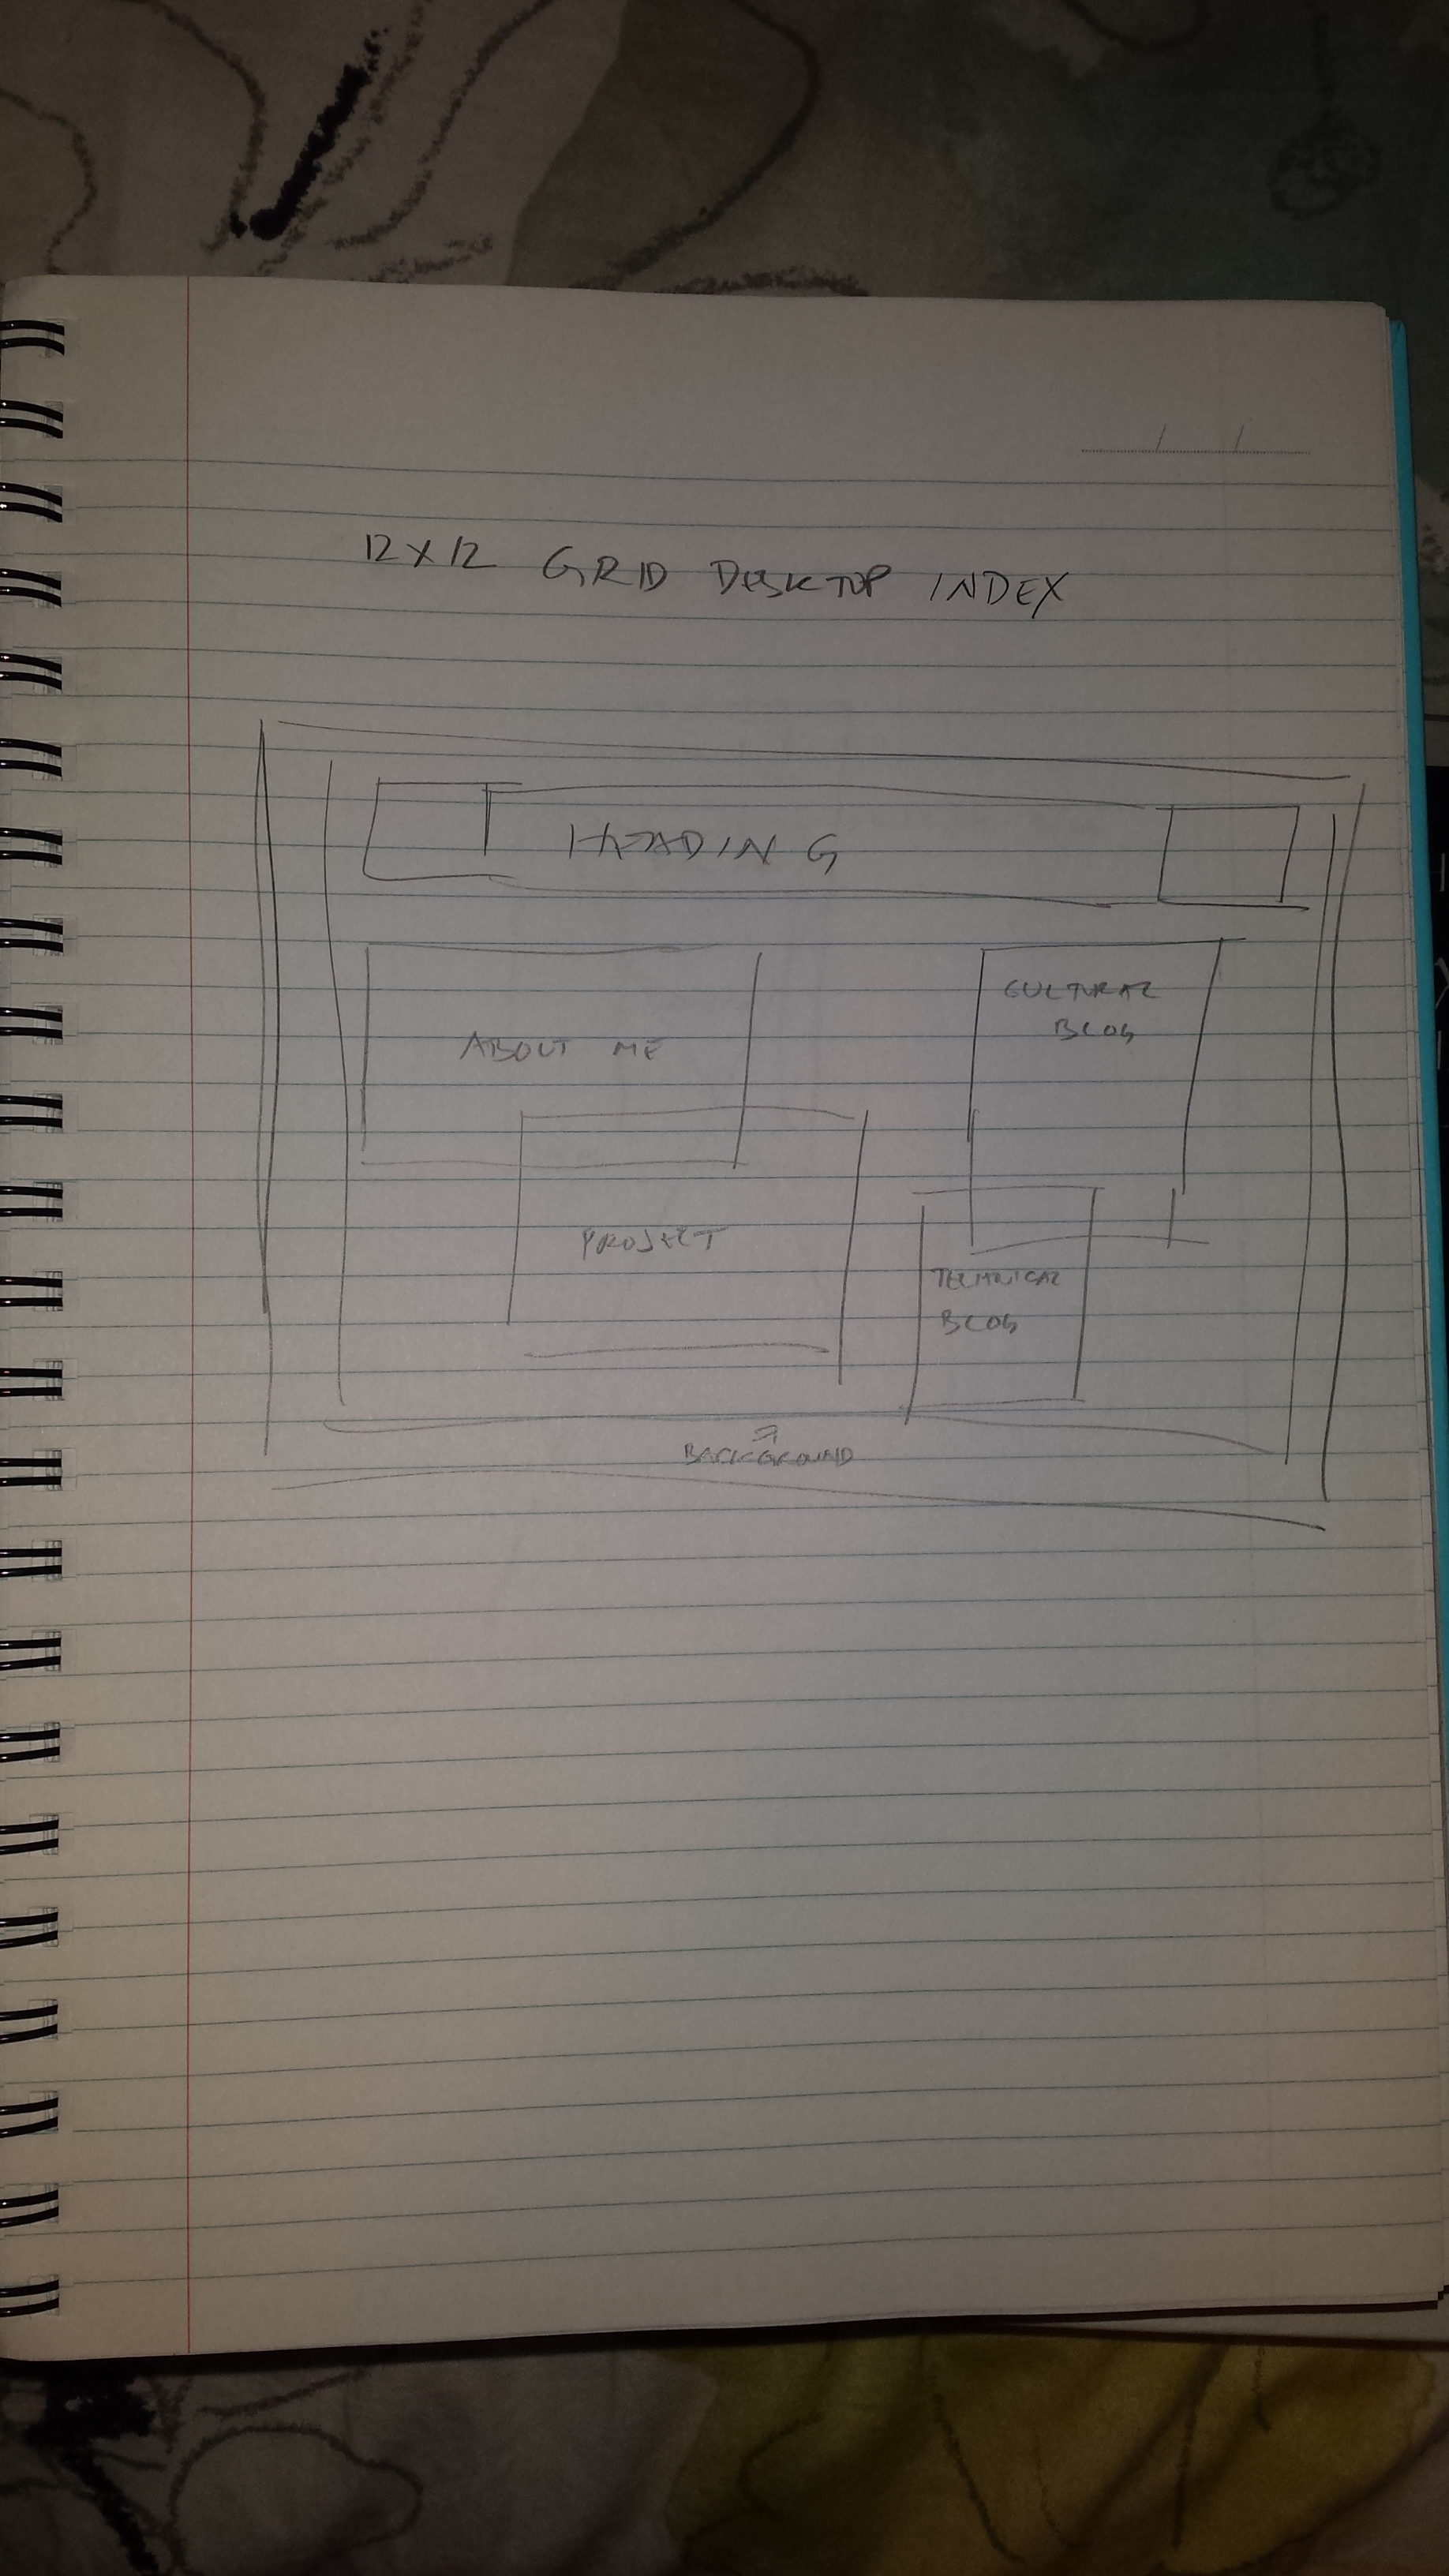 12 X 12 GRID DESKTOP INDEX
HEADING
ABOUT ME
CULTURAL
BLOG
PROJECT
TECHNICAL
BLOG
BACKGROUND